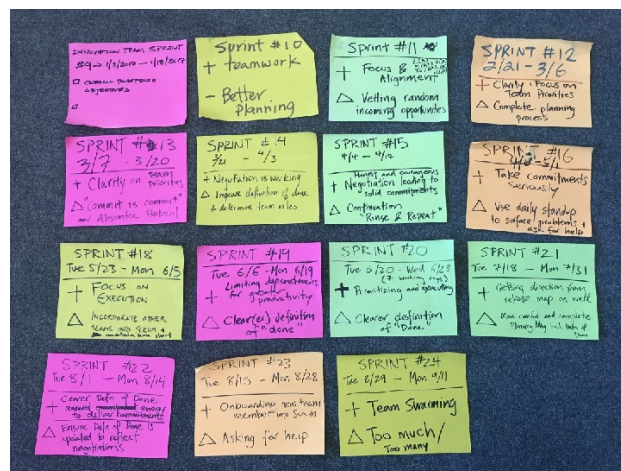 INNOVATION TEAM SPRINT
#9 → 1/3/2017 — 1/18/2017
□ OVERALL
OBJECTIVES
□
Sprint #10
+ teamwork
- Better
Planning
Sprint #11
+ Focus &
Alignment
△ Vetting random
incoming opportunities
SPRINT #12
2/21 - 3/6
+ Clarity & Focus on
Team Priorities
△ Complete planning
process
SPRINT #13
3/7 - 3/20
+ Clarity on team
priorities
△ "Commit is commit"
and Absentee Protocol
SPRINT #14
3/21 - 4/3
+ Negotiation is working
△ Improve definition of done
+ determine team roles
SPRINT #15
4/4 - 4/17
Honest and courageous
+ Negotiation leading to
solid commitments
△ Continuation
"Rinse & Repeat"
SPRINT #16
- 5/1
+ Take commitments
seriously
△ Use daily standup
to surface problems &
ask for help
SPRINT #18
Tue 5/23 - Mon 6/5
+ FOCUS ON
EXECUTION
△ INCORPORATE OTHER
TEAMS INTO SCRUM &
maintain burn chart
SPRINT #19
Tue 6/6 - Mon 6/19
Limiting dependencies
+ for greater
productivity
△ Clear(er) definition
of "done"
SPRINT #20
Tue 6/20 - Wed 6/28
(7 working days)
+ Prioritizing and executing
△ Clearer definition
of "Done"
SPRINT #21
Tue 7/18 - Mon 7/31
+ Getting direction from
release map on wall
△ More careful and complete
Planning Mtg incl. Defn of
Done
SPRINT #22
Tue 8/1 - Mon 8/14
Clearer Defn of Done
+ energy
to deliver commitments
△ Ensure Defn of Done is
updated to reflect
negotiations
SPRINT #23
Tue 8/15 - Mon 8/28
+ Onboarding new team
member w/
△ Asking for help
SPRINT #24
Tue 8/29 - Mon 9/11
+ Team Swarming
△ Too much/
Too many